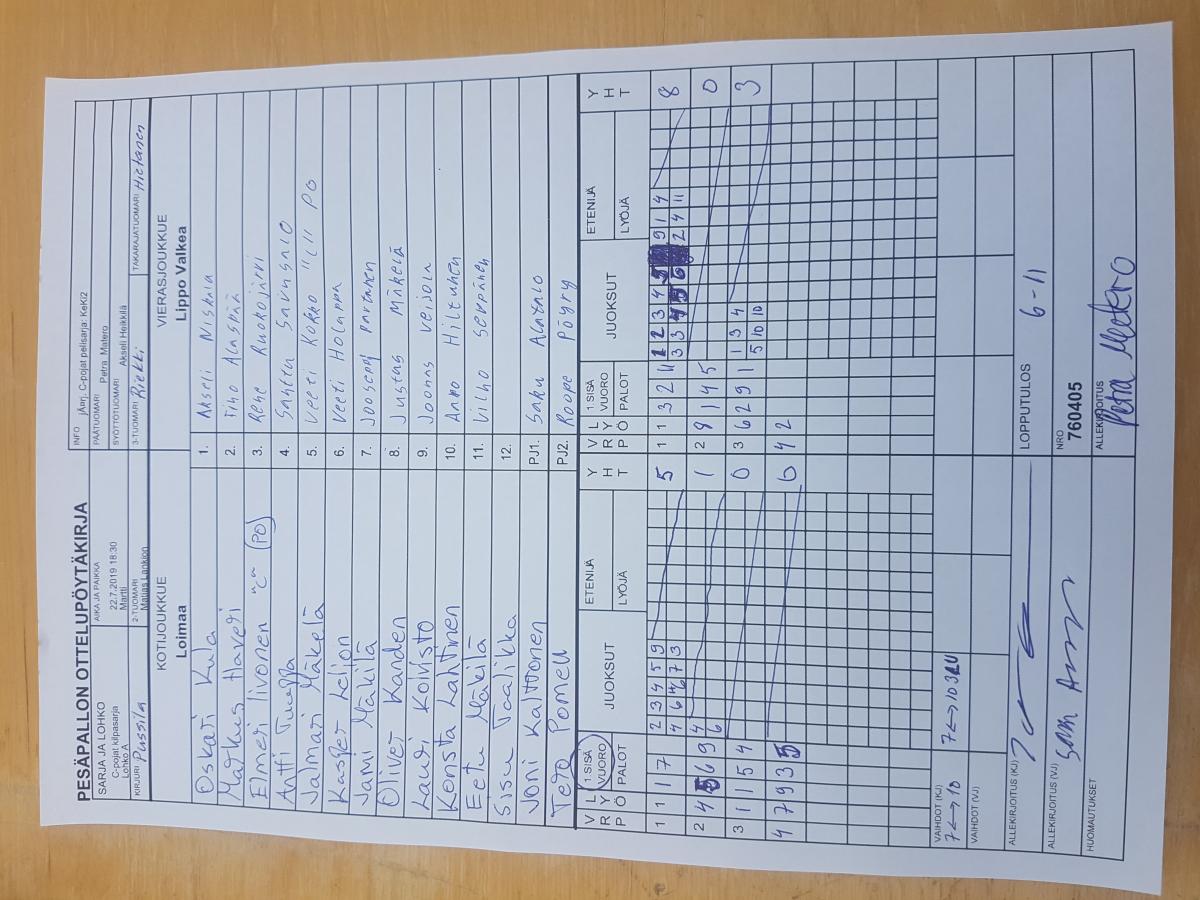 PESÄPALLON OTTELUPÖYTÄKIRJA
SARJA JA LOHKO
C-pojat kilpasarja
Lohko A
AIKA JA PAIKKA
22.7.2019 18:30
Martti
KIRJURI Pussila
2-TUOMARI
Matias Lankion
INFO jÄrj. C-pojat pelisarja: KeKi2
PÄÄTUOMARI Petra Matero
SYÖTTÖTUOMARI Akseli Heikkilä
3-TUOMARI Riekki
TAKARAJATUOMARI Hietanen
KOTIJOUKKUE
Loimaa
VIERASJOUKKUE
Lippo Valkea
Oskari Kula 1. Akseli Niskala
Markus 2. Tiho Alaspää
Elmeri Iivonen (PO) 3. Rene Ruokojärvi
Antti 4. Santtu
Jalmari Mäkelä 5. Veeti Kokko PO
Kasper 6. Veeti Holappa
Jami Mäkilä 7. Jooseppi Partanen
Oliver Kanden 8. Justus Mäkelä
Lauri Koivisto 9. Joonas Veijola
Konsta Lahtinen 10. Anno Hiltunen
Eetu Mäkilä 11. Vilho Serpänen
Sisu Taalika 12.
Joni Kaltoonen PJ1. Saku Alatalo
Tero Pomell PJ2. Roope Pöyry
V R P L Y Ö 1 SISÄ VUORO PALOT JUOKSUT ETENIJÄ LYÖJÄ Y H T
V R P L Y Ö 1 SISÄ VUORO PALOT JUOKSUT ETENIJÄ LYÖJÄ Y H T
1 1 1 7 2 3 4 5 9 5
4 6 7 3
1 1 3 2 11 1 2 3 4 9 1 4 8
3 3 2 4 11
2 4 5 6 9 4 1
6
2 8 1 4 5 0
3 1 1 5 4 0
3 6 2 9 1 1 3 4 3
5 10 10
4 7 9 3 5 0
4 2
VAIHDOT (KJ)
7<->10 7<->10 3RU
VAIHDOT (VJ)
ALLEKIRJOITUS (KJ)
LOPPUTULOS 6-11
ALLEKIRJOITUS (VJ)
NRO
760405
HUOMAUTUKSET
ALLEKIRJOITUS
Petra Matero